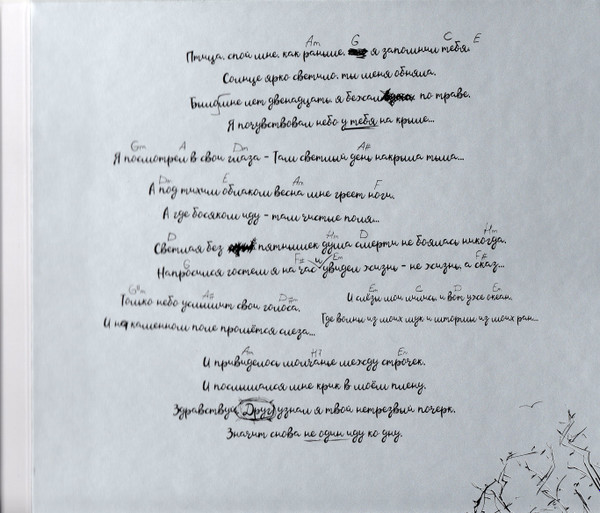 Am G C E
Птица, спой мне, как раньше, я запомнил тебя.
Солнце ярко светило, ты меня обняла.
Было мне лет двенадцать, я бежал по траве.
Я почувствовал небо у тебя на крыле...
Gm A Dm A#
Я посмотрел в свои глаза - Там светлый день накрыла тьма...
Dm E Am F
А под тихим облаком весна мне греет ноги.
А где босяком иду - там чистые поля...
D Hm D Hm
Светлая без пятнышек душа смерти не боялась никогда.
G F# и F#
Напросился гостем я на час увидел жизнь - не жизнь, а сказ...
G#m A# D#m
Только небо услышит свои голоса,
И на каменном поле прольётся слеза...
Em C D Em
И слёзы мои лились и вот уже океан,
Где волны из моих мук и штормы из моих ран...
Am H7 Em
И привиделось молчание между строчек.
И послышался мне крик в моём плену.
Здравствуй, Друг, узнал я твой нетрезвый почерк.
Значит снова не один иду ко дну.